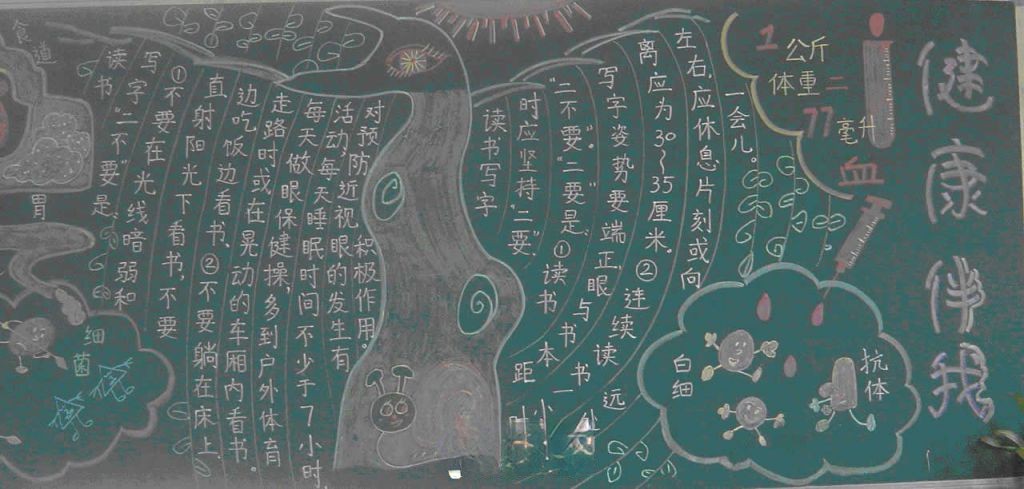 健康伴我
1公斤
体重=
77毫升
血
读书写字
时应坚持“二要”
“二不要”。“二要”是:①读书
写字姿势要端正,眼与书本距
离应为30~35厘米。②连续读书一小时
左右,应休息片刻或向远
一会儿。
白细
抗体
读书
写字“二不要”是
①不要在光线暗弱和
直射阳光下看书,不要
边吃饭边看书、②不要躺在床上
走路时或在晃动的车厢内看书。
每天做眼保健操,多到户外体育
活动,每天睡眠时间不少于7小时
对预防近视眼的发生有
积极作用。
食道
胃
细菌